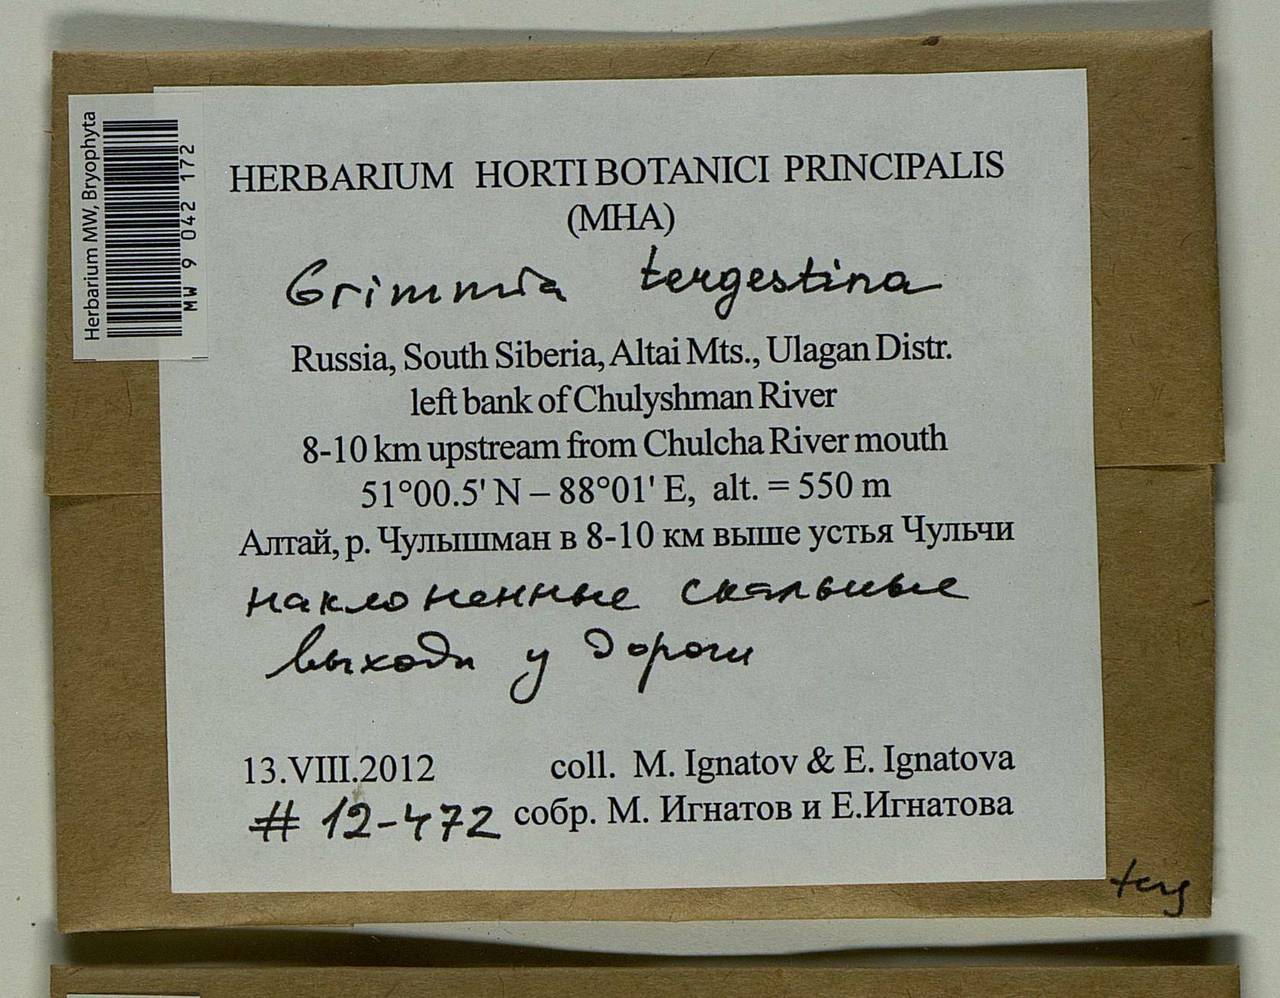 Herbarium MW, Bryophyta
MW 9 042 172
HERBARIUM HORTI BOTANICI PRINCIPALIS
(MHA)
Grimmia tergestina
Russia, South Siberia, Altai Mts., Ulagan Distr.
left bank of Chulyshman River
8-10 km upstream from Chulcha River mouth
51°00.5' N – 88°01' E, alt. = 550 m
Алтай, р. Чулышман в 8-10 км выше устья Чульчи
наклоненные скальные
выходы у дороги
13.VIII.2012 coll. M. Ignatov & E. Ignatova
# 12-472 собр. М. Игнатов и Е.Игнатова
terg